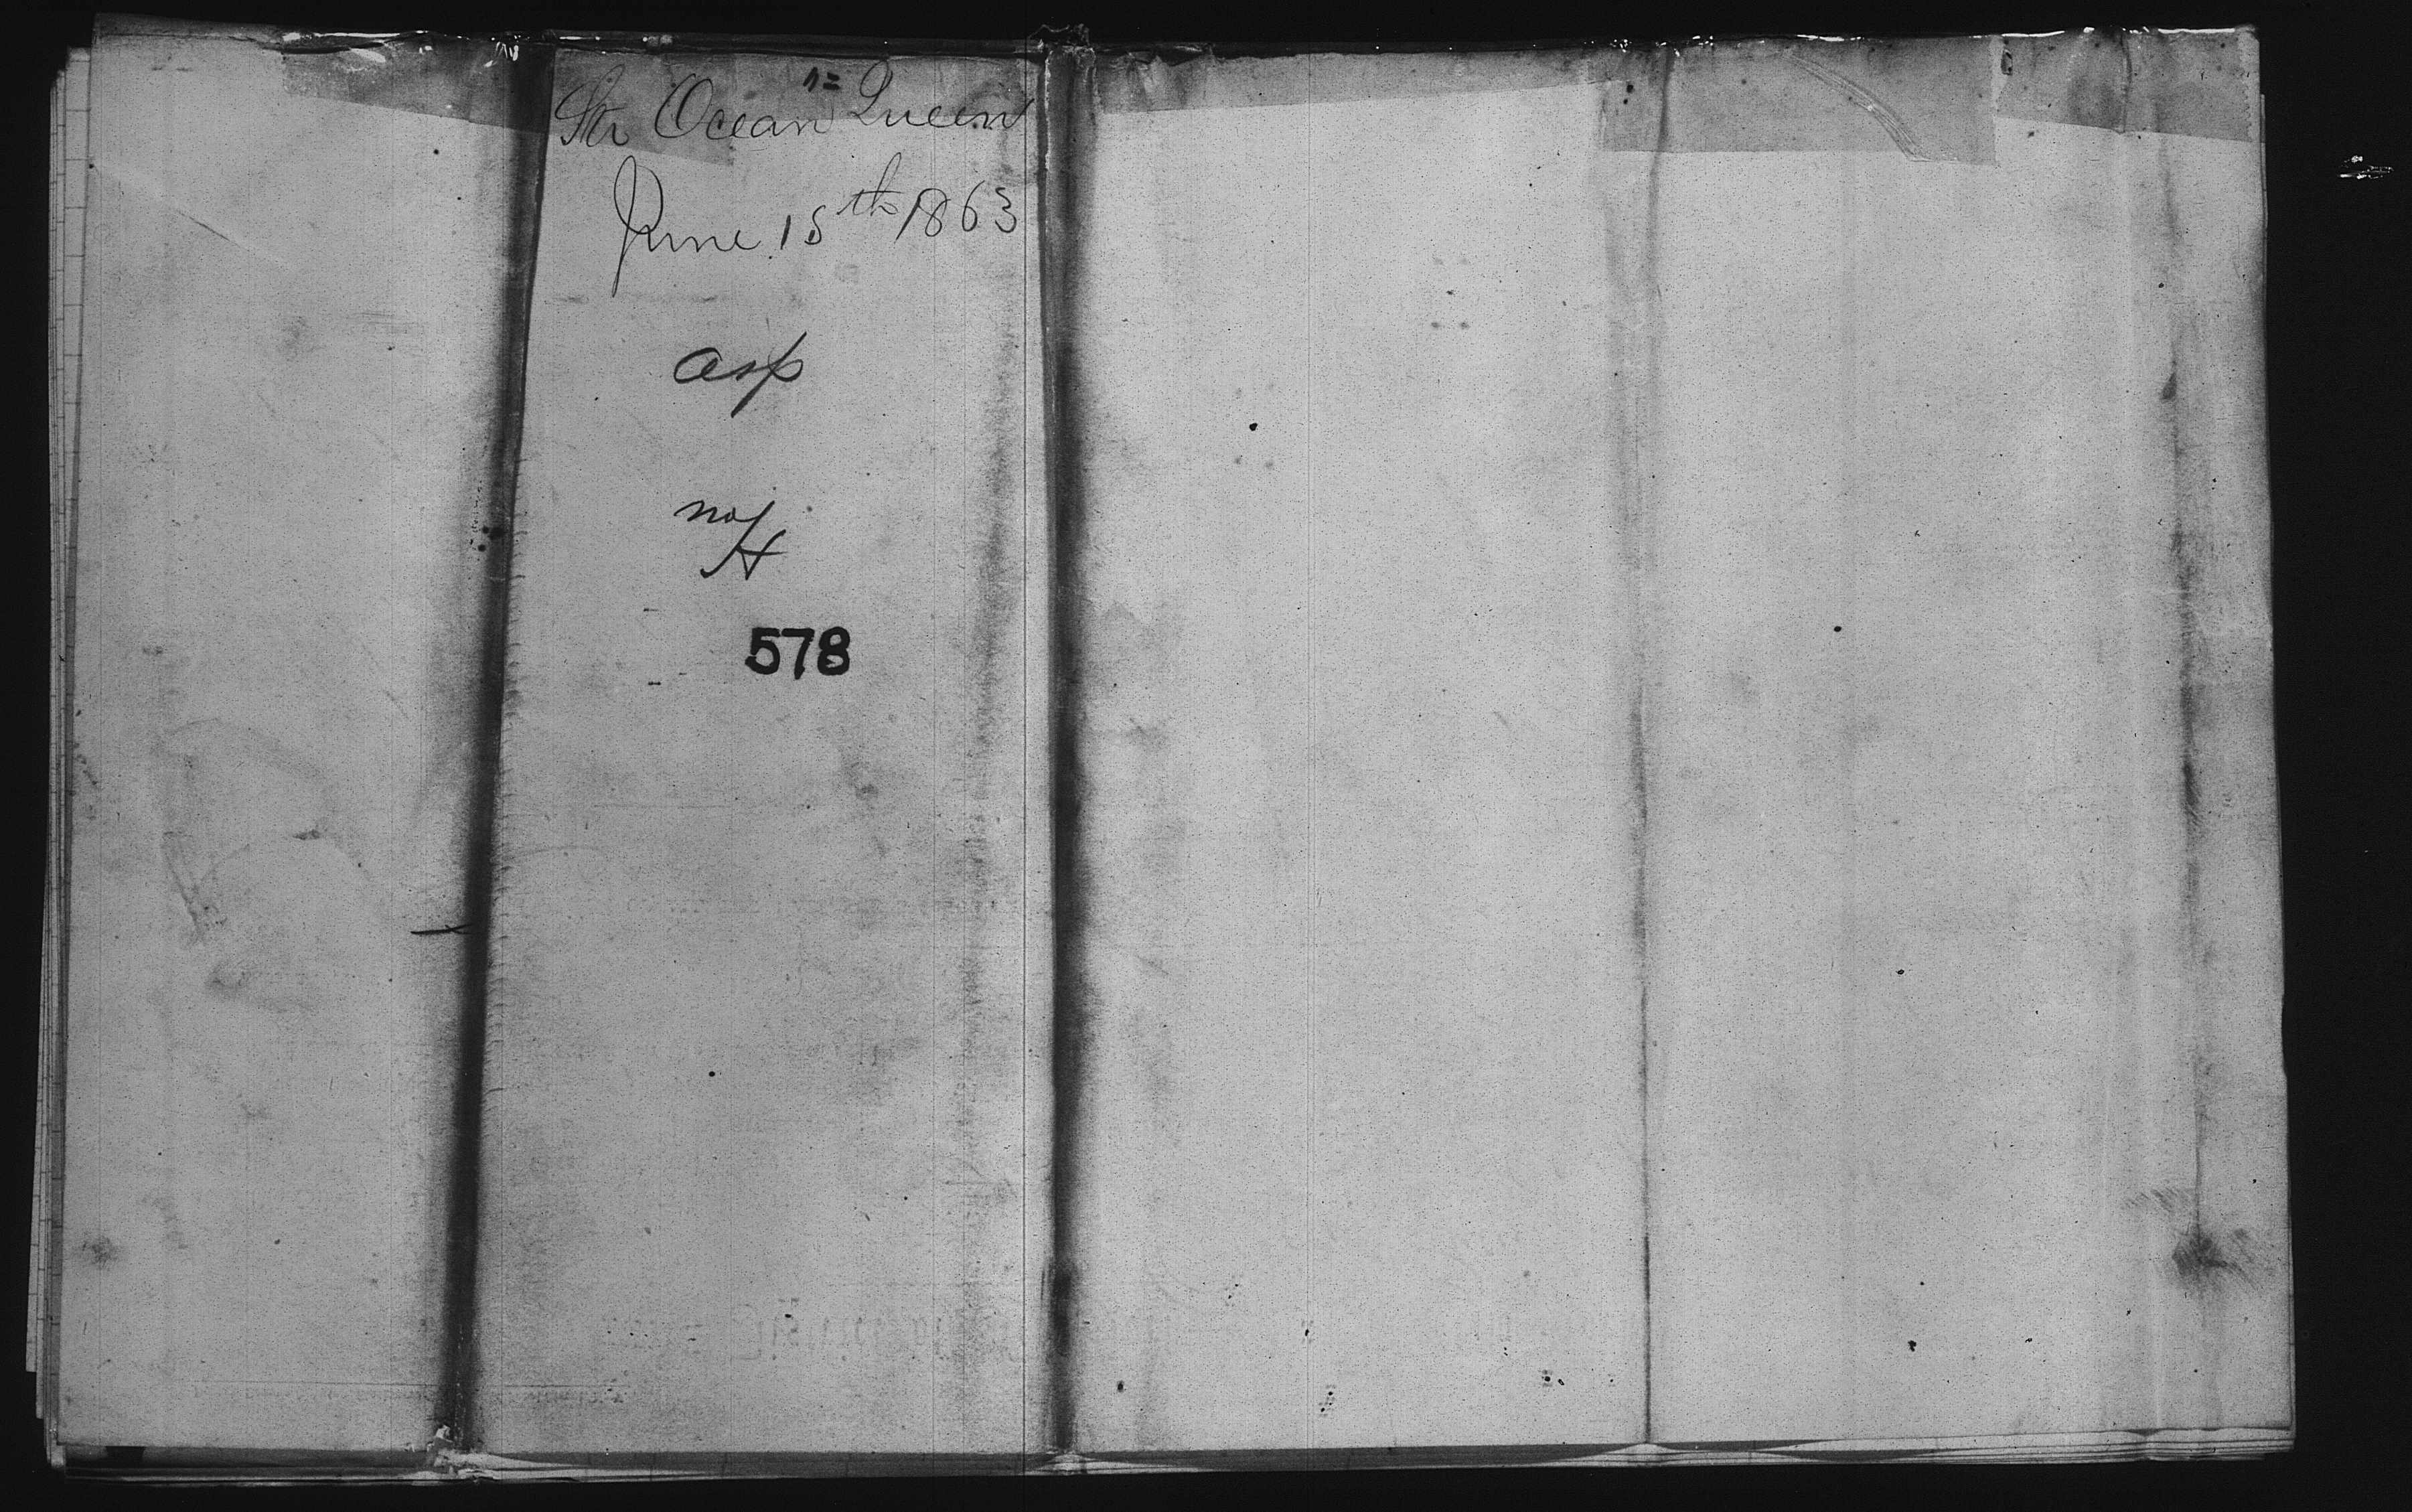 Str Ocean Queen
June 15th 1863
asp
no
H
578